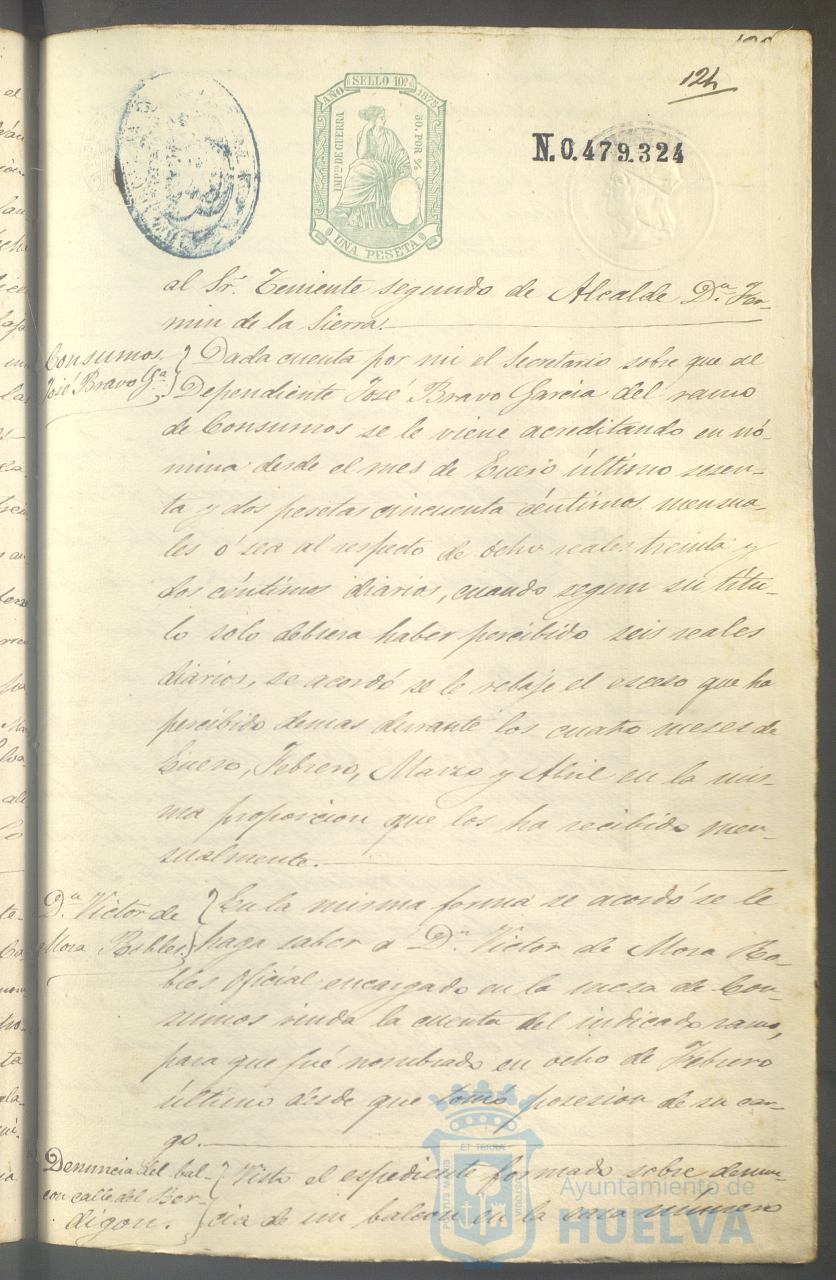 124
AÑO SELLO 10º 1878
IMPTO DE GUERRA
50. POR %
UNA PESETA
N.0.479.324
al Sr. Teniente segundo de Alcalde Dn. Fer-
min de la Sierra.
Consumos.
José Bravo Ga.
Dada cuenta por mi el Secretario sobre que al
Dependiente José Bravo Garcia del ramo
de Consumos se le viene acreditando en nó-
mina desde el mes de Enero último sesen-
ta y dos pesetas cincuenta céntimos mensua-
les ó sea al respecto de ocho reales treinta y
dos céntimos diarios, cuando segun su títu-
lo solo debiera haber percibido seis reales
diarios, se acordó se le rebaje el esceso que ha
percibido demas durante los cuatro meses de
Enero, Febrero, Marzo y Abril en la mis-
ma proporcion que los ha recibido men-
sualmente.
Dn. Victor de
Mora Robles
En la misma forma se acordó se le
haga saber á Dn. Victor de Mora Ro-
bles Oficial encargado en la mesa de Con-
sumos rinda la cuenta del indicado ramo,
para que fué nombrado en ocho de Febrero
último desde que tomó posesion de su car-
go.
Denuncia del bal-
con calle del Ber-
digon.
Visto el espediente formado sobre denun-
cia de un balcon en la casa número
ET TERRA
Ayuntamiento de
HUELVA